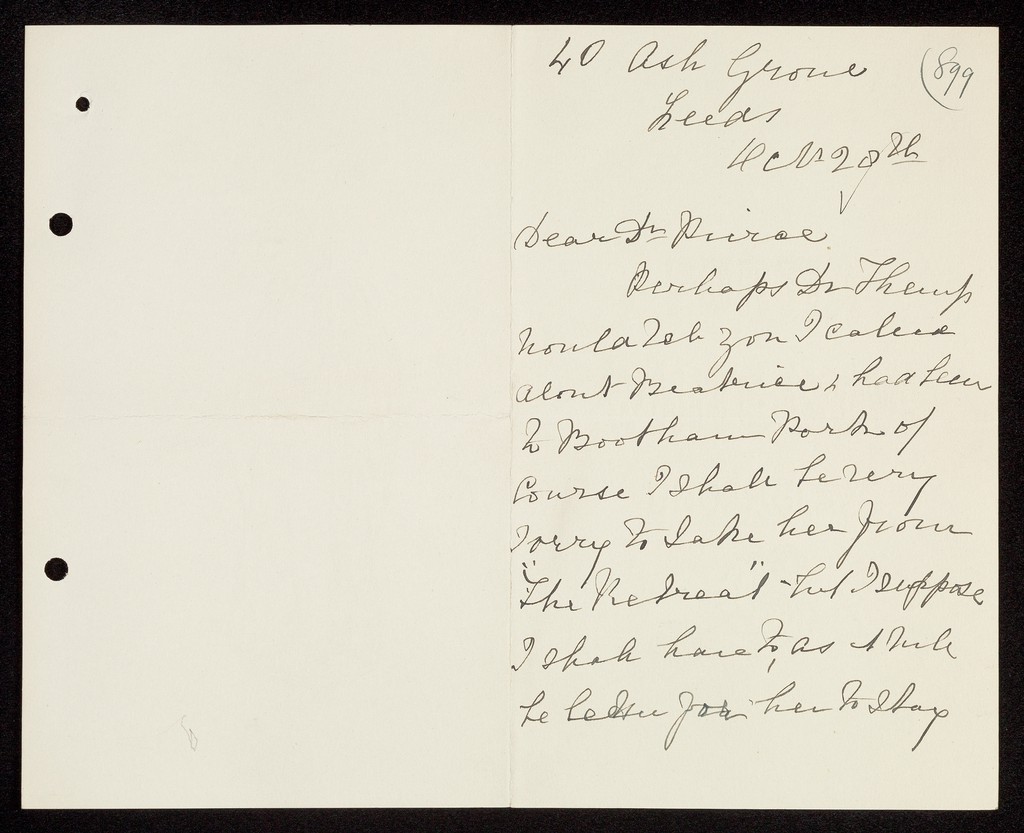 40 Ash Grove
(899
Leeds
Oct 29th
Dear Dr Pierce
Perhaps Dr Kemp
would tell you I called
about Beatrice & had been
to Bootham Park of
course I shall be very
sorry to take her from
"The Retreat" but I suppose
I shall have to, as it will
be better for her to stay